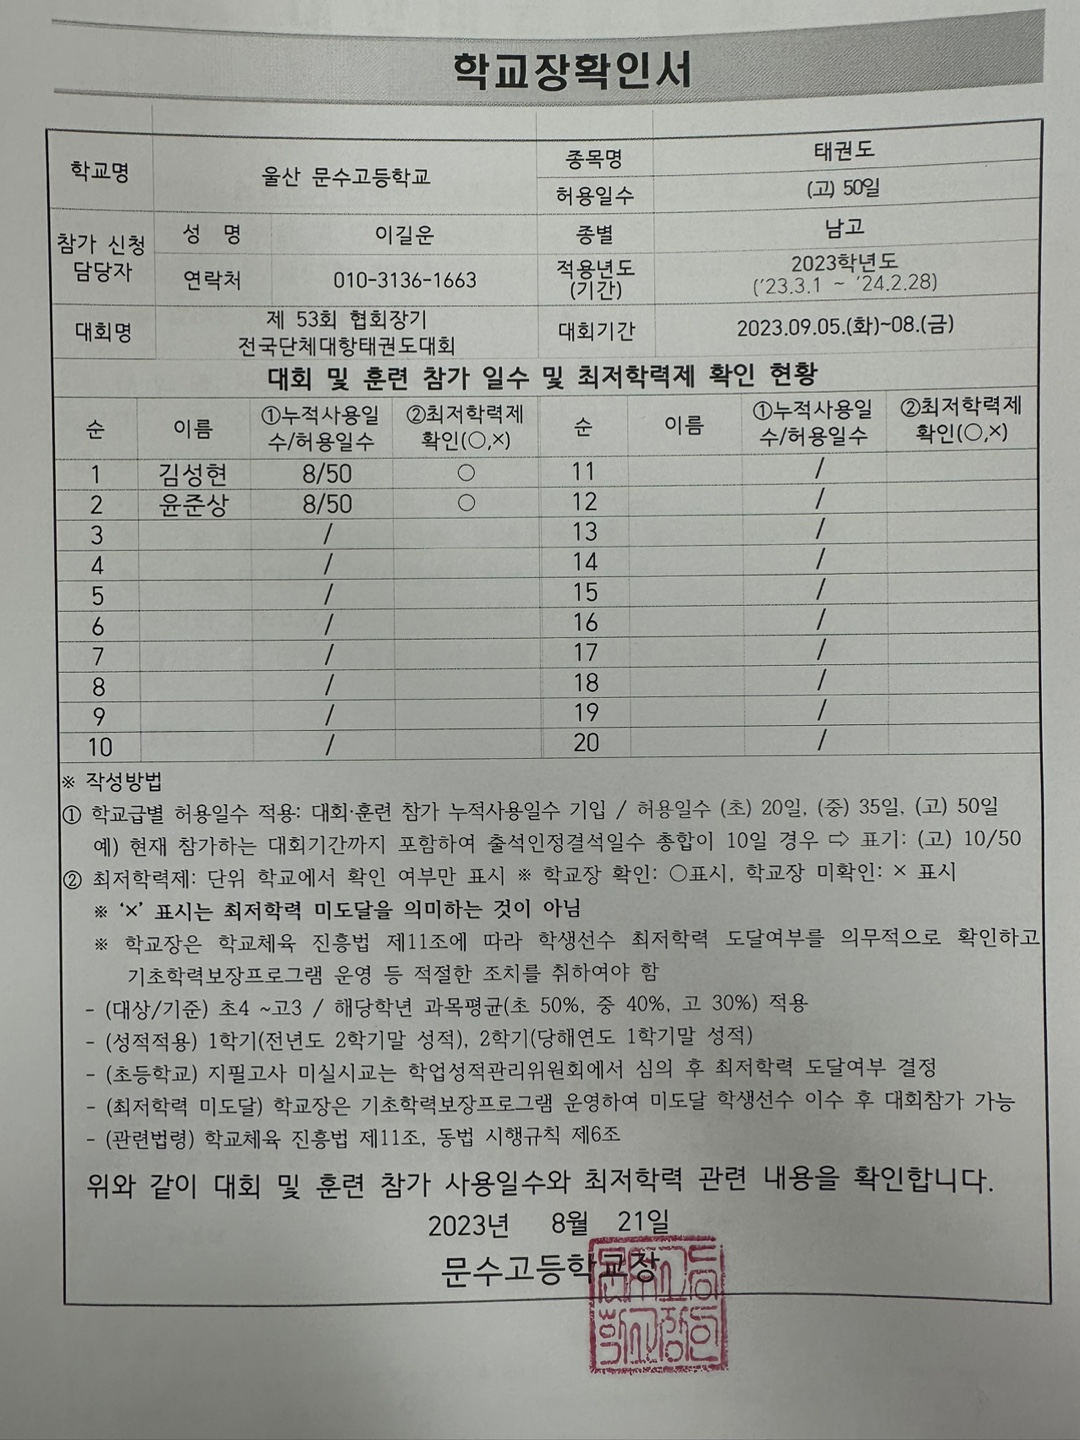 학교장확인서
학교명 울산 문수고등학교 종목명 태권도
허용일수 (고) 50일
참가 신청 담당자 성 명 이길운 종별 남고
연락처 010-3136-1663 적용년도 (기간) 2023학년도 ('23.3.1 ~ '24.2.28)
대회명 제 53회 협회장기 전국단체대항태권도대회 대회기간 2023.09.05.(화)~08.(금)
대회 및 훈련 참가 일수 및 최저학력제 확인 현황
순 이름 ①누적사용일수/허용일수 ②최저학력제 확인(○,×) 순 이름 ①누적사용일수/허용일수 ②최저학력제 확인(○,×)
1 김성현 8/50 ○ 11 /
2 윤준상 8/50 ○ 12 /
3 / 13 /
4 / 14 /
5 / 15 /
6 / 16 /
7 / 17 /
8 / 18 /
9 / 19 /
10 / 20 /
※ 작성방법
① 학교급별 허용일수 적용: 대회·훈련 참가 누적사용일수 기입 / 허용일수 (초) 20일, (중) 35일, (고) 50일
예) 현재 참가하는 대회기간까지 포함하여 출석인정결석일수 총합이 10일 경우 ⇨ 표기: (고) 10/50
② 최저학력제: 단위 학교에서 확인 여부만 표시 ※ 학교장 확인: ○표시, 학교장 미확인: × 표시
※ '×' 표시는 최저학력 미도달을 의미하는 것이 아님
※ 학교장은 학교체육 진흥법 제11조에 따라 학생선수 최저학력 도달여부를 의무적으로 확인하고
기초학력보장프로그램 운영 등 적절한 조치를 취하여야 함
- (대상/기준) 초4 ~고3 / 해당학년 과목평균(초 50%, 중 40%, 고 30%) 적용
- (성적적용) 1학기(전년도 2학기말 성적), 2학기(당해연도 1학기말 성적)
- (초등학교) 지필고사 미실시교는 학업성적관리위원회에서 심의 후 최저학력 도달여부 결정
- (최저학력 미도달) 학교장은 기초학력보장프로그램 운영하여 미도달 학생선수 이수 후 대회참가 가능
- (관련법령) 학교체육 진흥법 제11조, 동법 시행규칙 제6조
위와 같이 대회 및 훈련 참가 사용일수와 최저학력 관련 내용을 확인합니다.
2023년 8월 21일
문수고등학교장